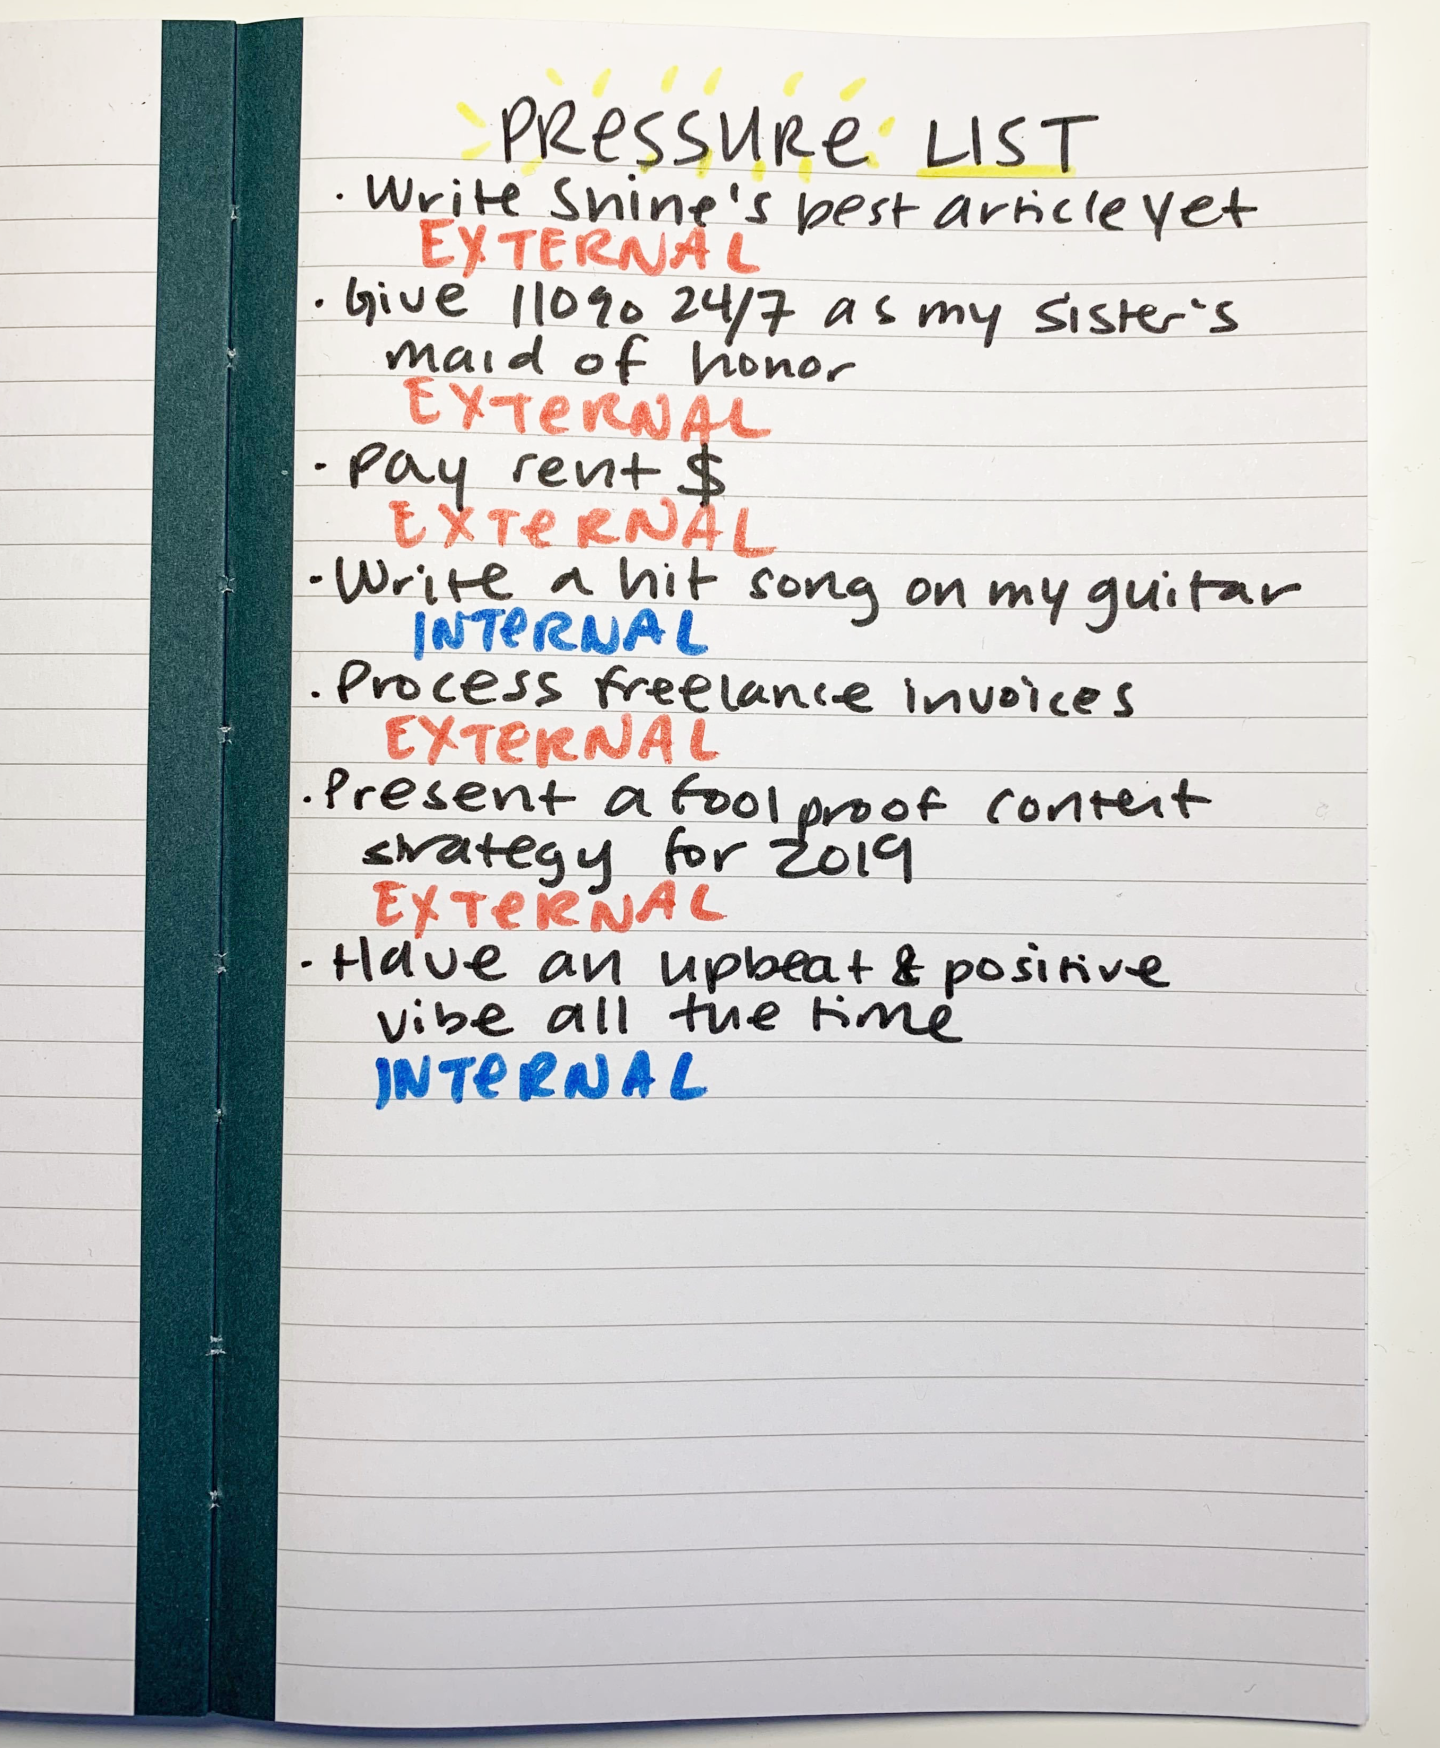 PRESSURE LIST
· Write Shine's best article yet
EXTERNAL
· Give 110% 24/7 as my sister's
maid of honor
EXTERNAL
· Pay rent $
EXTERNAL
· Write a hit song on my guitar
INTERNAL
· Process freelance invoices
EXTERNAL
· Present a foolproof content
strategy for 2019
EXTERNAL
· Have an upbeat & positive
vibe all the time
INTERNAL